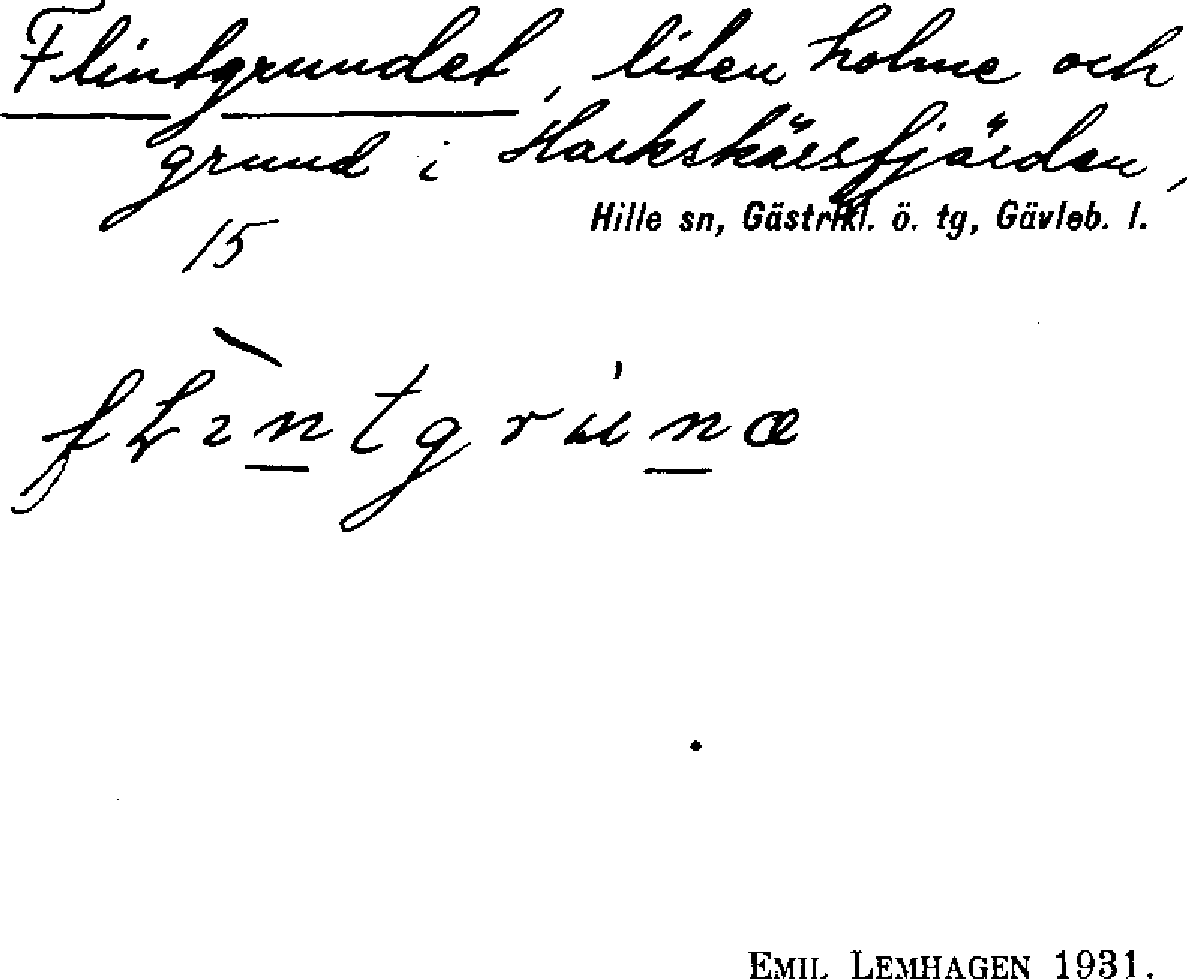 Flintgrundet, liten holme och
grund i Harkskärsfjärden,
Hille sn, Gästrikl. ö. tg, Gävleb. l.
15
flìntgrúnæ
EMIL LEMHAGEN 1931.